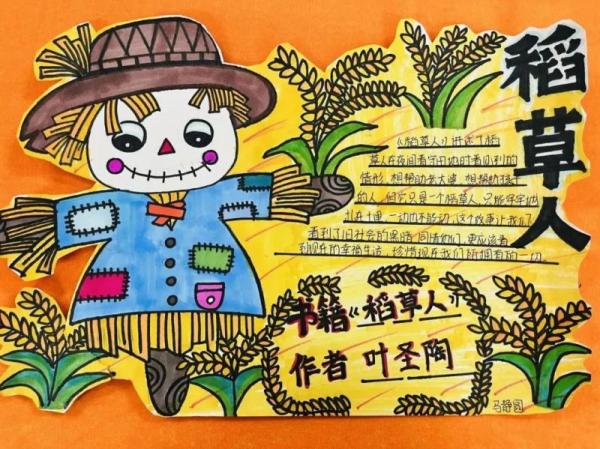 稻草人
《稻草人》讲述了稻
草人在夜间看守田地时看见到的
情形,想帮助老太婆,想帮助孩子
的人,但它只是一个稻草人,只能牢牢地
扎在土里一动也不能动,这个故事让我们
看到了旧社会的黑暗,同情他们,更应该看
到现在的幸福生活,珍惜现在我们所拥有的一切
书籍《稻草人》
作者 叶圣陶
马静圆